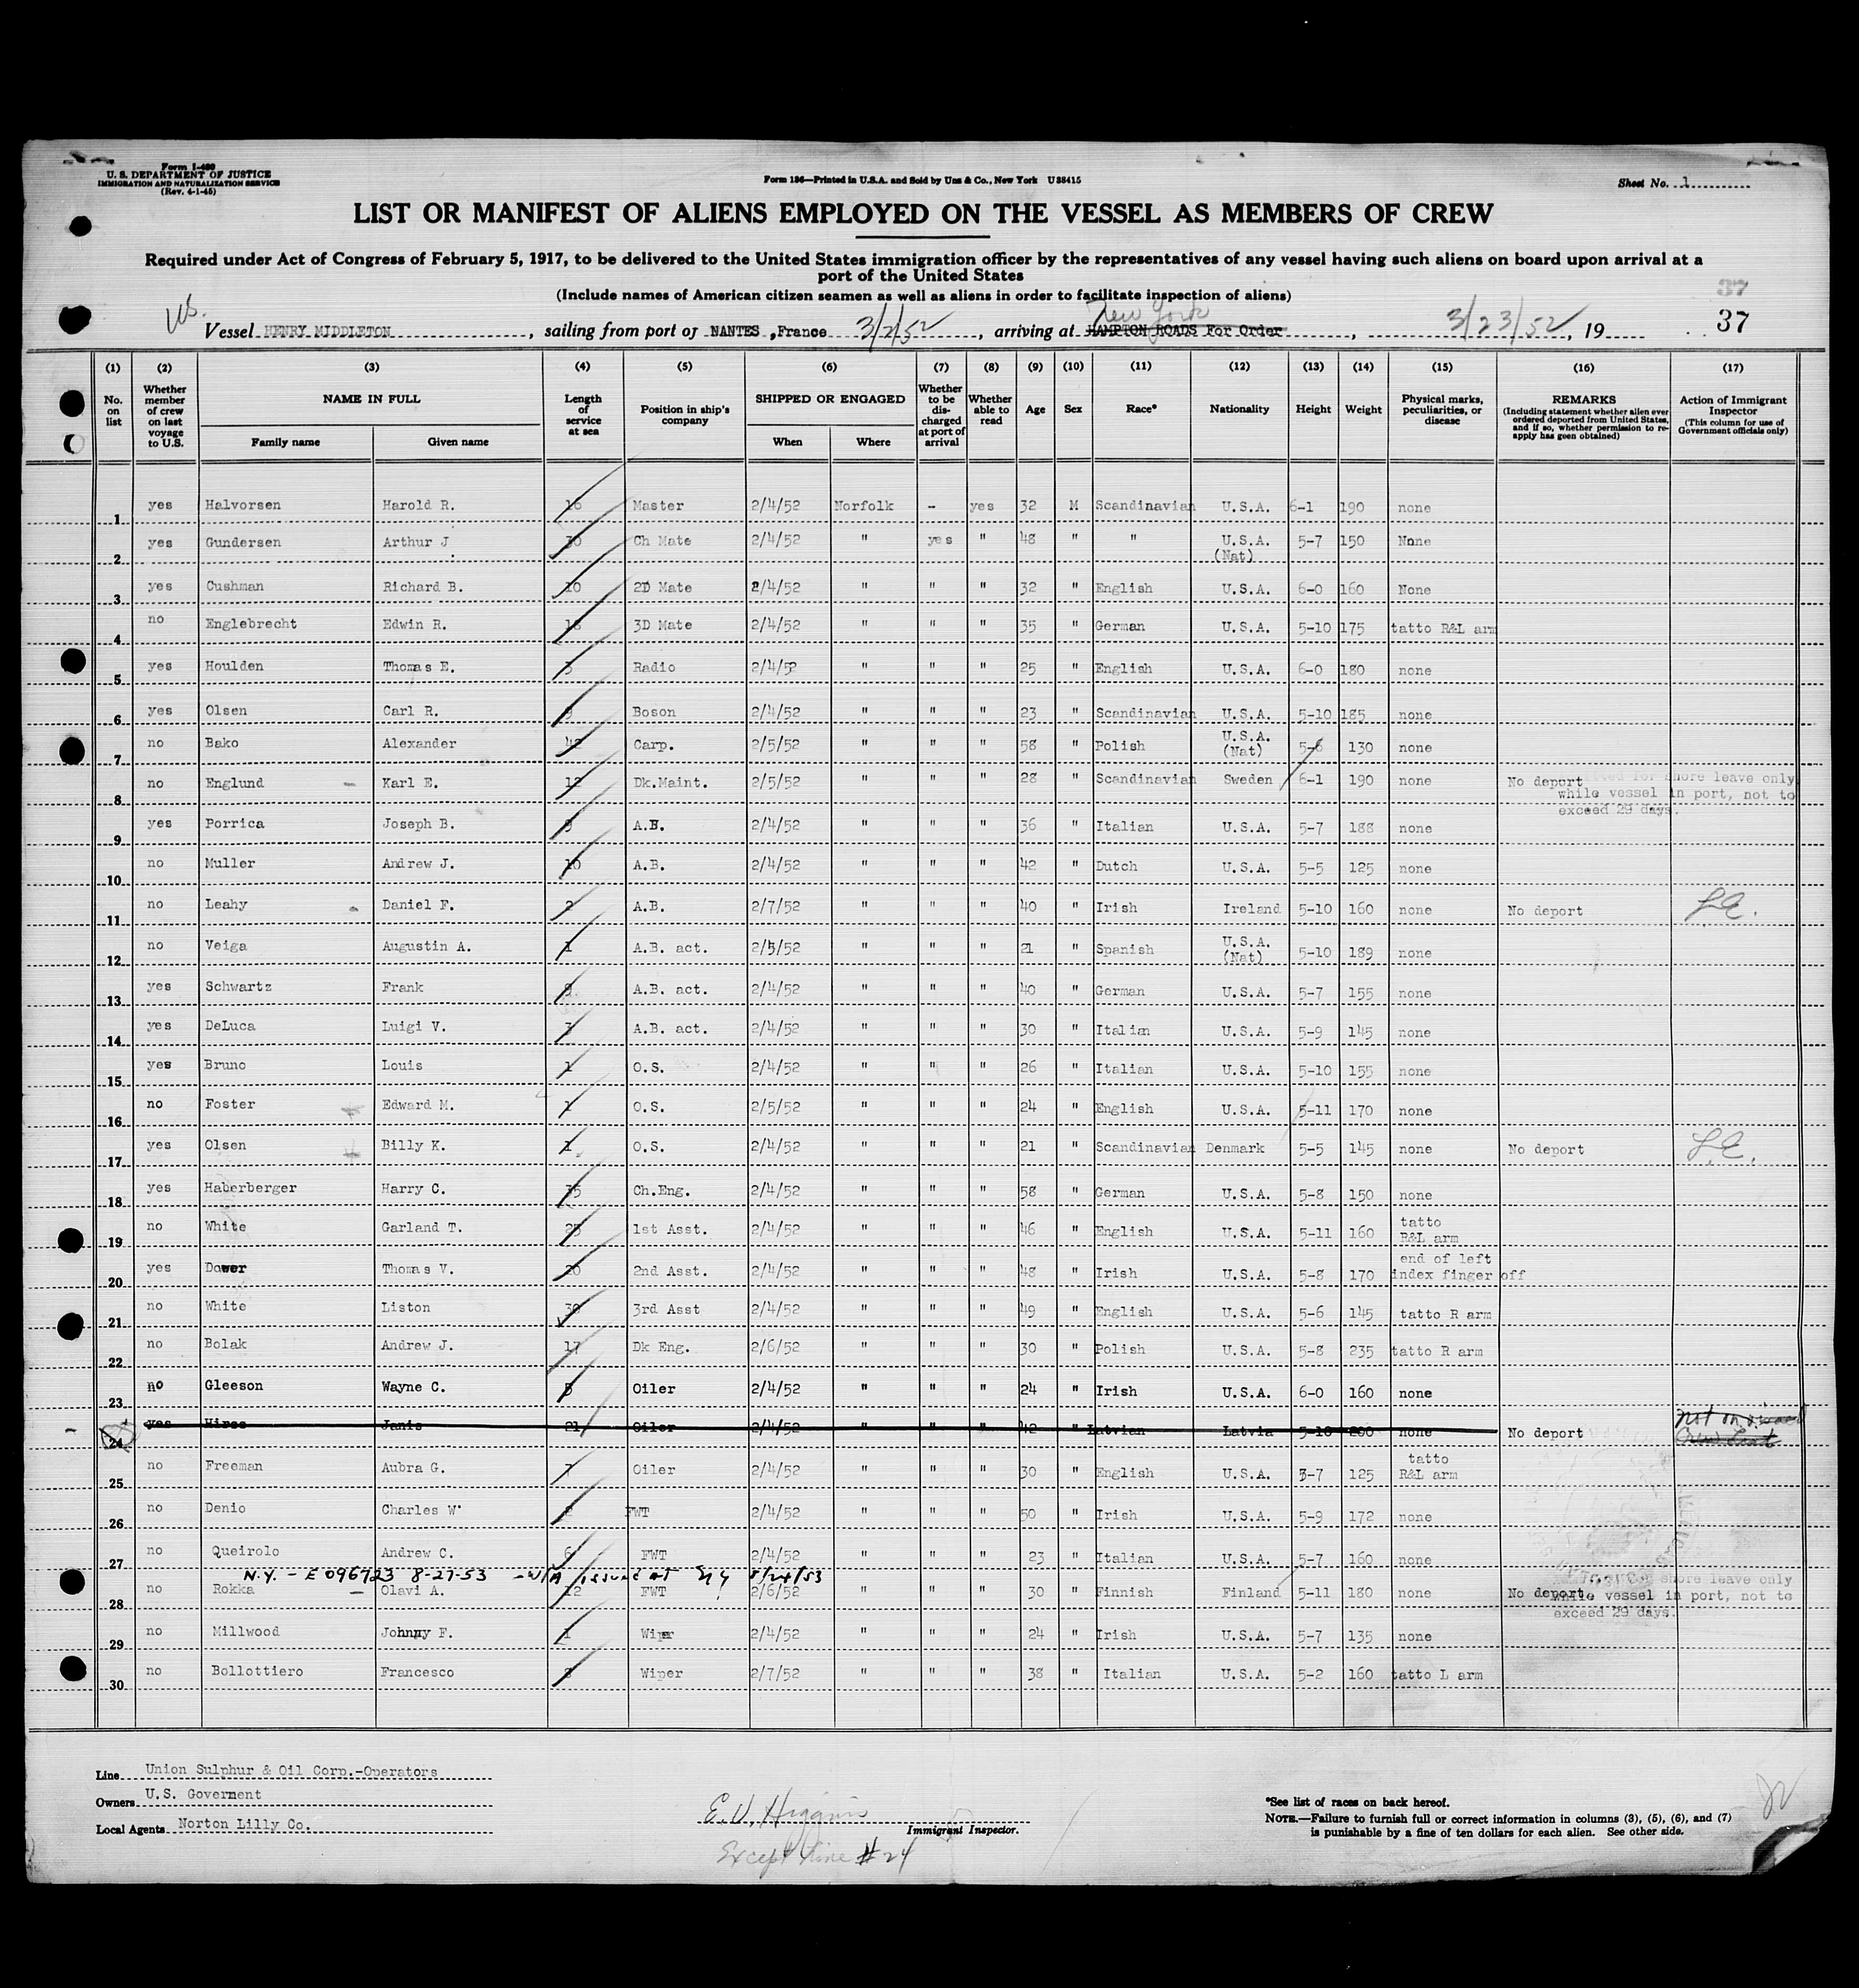 Form I-480
U. S. DEPARTMENT OF JUSTICE
IMMIGRATION AND NATURALIZATION SERVICE
(Rev. 4-1-45)
Form 136—Printed in U.S.A. and Sold by Unz & Co., New York U 38415
Sheet No. 1
LIST OR MANIFEST OF ALIENS EMPLOYED ON THE VESSEL AS MEMBERS OF CREW
Required under Act of Congress of February 5, 1917, to be delivered to the United States immigration officer by the representatives of any vessel having such aliens on board upon arrival at a
port of the United States
(Include names of American citizen seamen as well as aliens in order to facilitate inspection of aliens)
37
New York
US. Vessel HENRY MIDDLETON, sailing from port of NANTES ,France 3/2/52, arriving at HAMPTON ROADS For Order, 3/23/52, 19 37
(1) (2) (3) (4) (5) (6) (7) (8) (9) (10) (11) (12) (13) (14) (15) (16) (17)
No. on list Whether member of crew on last voyage to U.S. NAME IN FULL Family name Given name Length of service at sea Position in ship's company SHIPPED OR ENGAGED When Where Whether to be dis-charged at port of arrival Whether able to read Age Sex Race* Nationality Height Weight Physical marks, peculiarities, or disease REMARKS (Including statement whether alien ever ordered deported from United States, and if so, whether permission to re-apply has geen obtained) Action of Immigrant Inspector (This column for use of Government officials only)
1 yes Halvorsen Harold R. 16 Master 2/4/52 Norfolk - yes 32 M Scandinavian U.S.A. 6-1 190 none
2 yes Gundersen Arthur J 30 Ch Mate 2/4/52 " yes " 48 " " U.S.A. (Nat) 5-7 150 None
3 yes Cushman Richard B. 10 2D Mate 2/4/52 " " " 32 " English U.S.A. 6-0 160 None
4 no Englebrecht Edwin R. 3D Mate 2/4/52 " " " 35 " German U.S.A. 5-10 175 tatto R&L arm
5 yes Houlden Thomas E. 3 Radio 2/4/52 " " " 25 " English U.S.A. 6-0 180 none
6 yes Olsen Carl R. Boson 2/4/52 " " " 23 " Scandinavian U.S.A. 5-10 185 none
7 no Bako Alexander 42 Carp. 2/5/52 " " " 58 " Polish U.S.A. (Nat) 5-6 130 none
8 no Englund Karl E. 12 Dk.Maint. 2/5/52 " " " 28 " Scandinavian Sweden 6-1 190 none No deport for shore leave only
while vessel in port, not to
exceed 29 days.
9 yes Porrica Joseph B. A.B. 2/4/52 " " " 36 " Italian U.S.A. 5-7 188 none
10 no Muller Andrew J. 10 A.B. 2/4/52 " " " 42 " Dutch U.S.A. 5-5 125 none
11 no Leahy Daniel F. 2 A.B. 2/7/52 " " " 40 " Irish Ireland 5-10 160 none No deport
12 no Veiga Augustin A. 1 A.B. act. 2/5/52 " " " 21 " Spanish U.S.A. (Nat) 5-10 189 none
13 yes Schwartz Frank A.B. act. 2/4/52 " " " 40 " German U.S.A. 5-7 155 none
14 yes DeLuca Luigi V. 3 A.B. act. 2/4/52 " " " 30 " Italian U.S.A. 5-9 145 none
15 yes Bruno Louis 1 O.S. 2/4/52 " " " 26 " Italian U.S.A. 5-10 155 none
16 no Foster Edward M. 1 O.S. 2/5/52 " " " 24 " English U.S.A. 5-11 170 none
17 yes Olsen Billy K. 1 O.S. 2/4/52 " " " 21 " Scandinavian Denmark 5-5 145 none No deport
18 yes Haberberger Harry C. 35 Ch.Eng. 2/4/52 " " " 58 " German U.S.A. 5-8 150 none
19 no White Garland T. 25 1st Asst. 2/4/52 " " " 46 " English U.S.A. 5-11 160 tatto R&L arm
20 yes Dower Thomas V. 20 2nd Asst. 2/4/52 " " " 48 " Irish U.S.A. 5-8 170 end of left index finger off
21 no White Liston 30 3rd Asst 2/4/52 " " " 49 " English U.S.A. 5-6 145 tatto R arm
22 no Bolak Andrew J. 17 Dk Eng. 2/6/52 " " " 30 " Polish U.S.A. 5-8 235 tatto R arm
23 no Gleeson Wayne C. 5 Oiler 2/4/52 " " " 24 " Irish U.S.A. 6-0 160 none
24 yes Janis 21 Oiler 2/4/52 " " " 42 " Latvian Latvia 5-10 200 none No deport Not on Crew List
25 no Freeman Aubra G. 7 Oiler 2/4/52 " " " 30 " English U.S.A. 5-7 125 tatto R&L arm
26 no Denio Charles W. FWT 2/4/52 " " " 50 " Irish U.S.A. 5-9 172 none
27 no Queirolo Andrew C. 6 FWT 2/4/52 " " " 23 " Italian U.S.A. 5-7 160 none
N.Y. - E 096723 8-27-53 - W/A issued at NY 8/24/53
28 no Rokka Olavi A. 12 FWT 2/6/52 " " " 30 " Finnish Finland 5-11 180 none No deport shore leave only
while vessel in port, not to
exceed 29 days.
29 no Millwood Johnny F. 1 Wiper 2/4/52 " " " 24 " Irish U.S.A. 5-7 135 none
30 no Bollottiero Francesco Wiper 2/7/52 " " " 38 " Italian U.S.A. 5-2 160 tatto L arm
Line Union Sulphur & Oil Corp.-Operators
Owners U.S. Goverment
Local Agents Norton Lilly Co.
E.V. Higgins
Immigrant Inspector.
Except line #24
*See list of races on back hereof.
NOTE.—Failure to furnish full or correct information in columns (3), (5), (6), and (7)
is punishable by a fine of ten dollars for each alien. See other side.